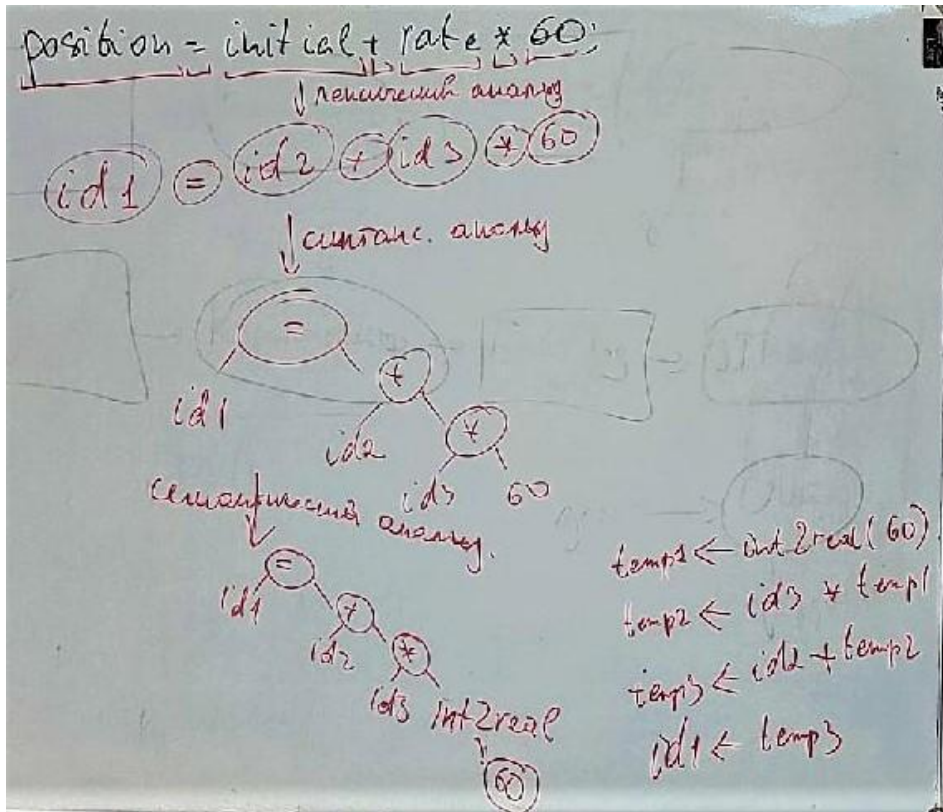 position = initial + rate * 60
лексический анализ
id1 = id2 + id3 * 60
синтакс. анализ
=
id1 +
id2 *
id3 60
семантический анализ.
=
id1 +
id2 *
id3 int2real
60
temp1 ← int2real(60)
temp2 ← id3 * temp1
temp3 ← id2 + temp2
id1 ← temp3